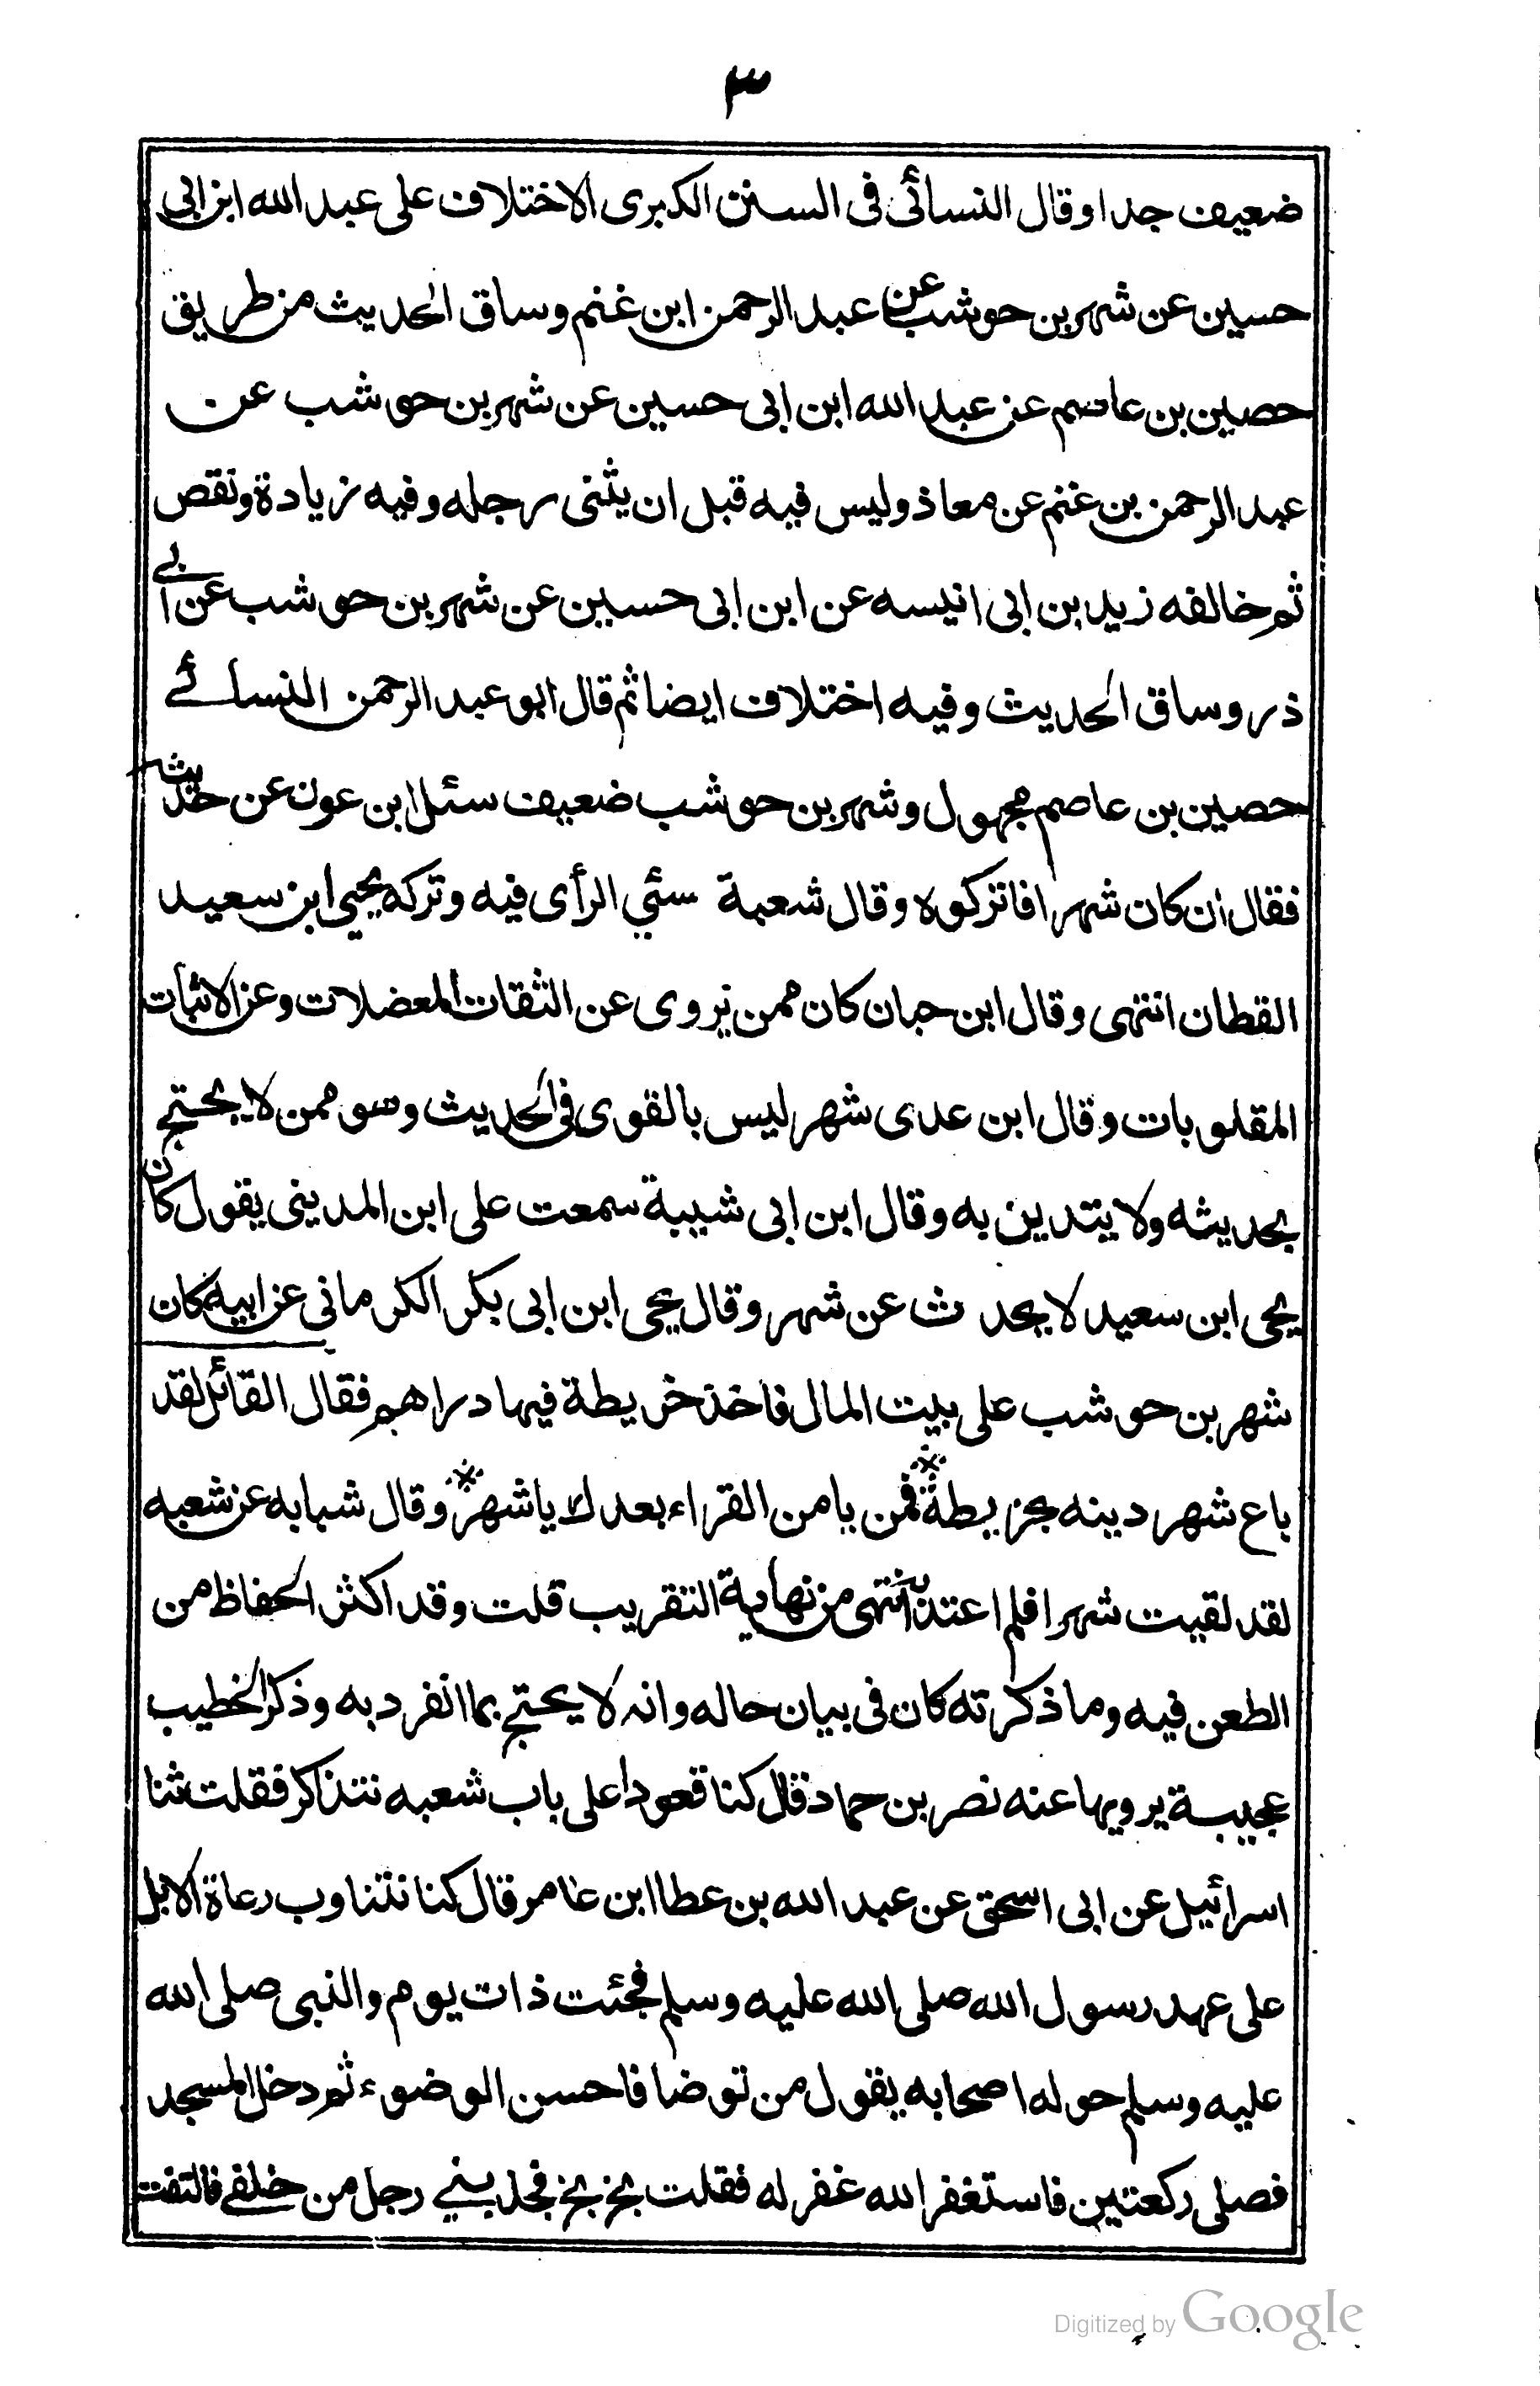 ٣
ضعيف جدا وقال النسائى فى السنن الكبرى الاختلاف على عبد الله ابن ابى
حسين عن شهر بن حوشب عن عبد الرحمن ابن غنم وساق الحديث من طريق
حصين بن عاصم عن عبد الله ابن ابى حسين عن شهر بن حوشب عن
عبد الرحمن بن غنم عن معاذ وليس فيه قبل ان يثنى رجله وفيه زيادة ونقص
ثم خالفه زيد بن ابى انيسه عن ابن ابى حسين عن شهر بن حوشب عن ابى
ذر وساق الحديث وفيه اختلاف ايضا ثم قال ابو عبد الرحمن النسائے
حصين بن عاصم مجهول وشهر بن حوشب ضعيف سئل ابن عون عن حديث
فقال ان كان شهرا فاتركوه وقال شعبة سئي الرأى فيه وتركه يحيى ابن سعيد
القطان انتهى وقال ابن حبان كان ممن يروى عن الثقات المعضلات وعن الاثبات
المقلوبات وقال ابن عدى شهر ليس بالقوى فى الحديث وهو ممن لا يحتج
بحديثه ولا يتدين به وقال ابن ابى شيبة سمعت على ابن المدينى يقول كان
يحى ابن سعيد لا يحدث عن شهر وقال يحى ابن ابى بكر الكرمانى عن ابيه كان
شهر بن حوشب على بيت المال فاخذ خريطة فيها دراهم فقال القائل لقد
باع شهر دينه بخريطة فمن يامن القراء بعدك يا شهر وقال شبابه عن شعبه
لقد لقيت شهرا فلم اعتد به انتهى من نهاية التقريب قلت وقد اكثر الحفاظ من
الطعن فيه وما ذكرته كان فى بيان حاله وانه لا يحتج بما انفرد به وذكر الخطيب
عجيبة يرويها عنه نصر بن حماد قال كنا قعودا على باب شعبه نتذاكر فقلت ثنا
اسرائيل عن ابى اسحق عن عبد الله بن عطا ابن عامر قال كنا نتناوب رعاة الابل
على عهد رسول الله صلى الله عليه وسلم فجئت ذات يوم والنبى صلى الله
عليه وسلم حوله اصحابه يقول من توضا فاحسن الوضوء ثم دخل المسجد
فصلى ركعتين فاستغفر الله غفر له فقلت بخ بخ فجذبنے رجل من خلفے فالتفت
Digitized by Google